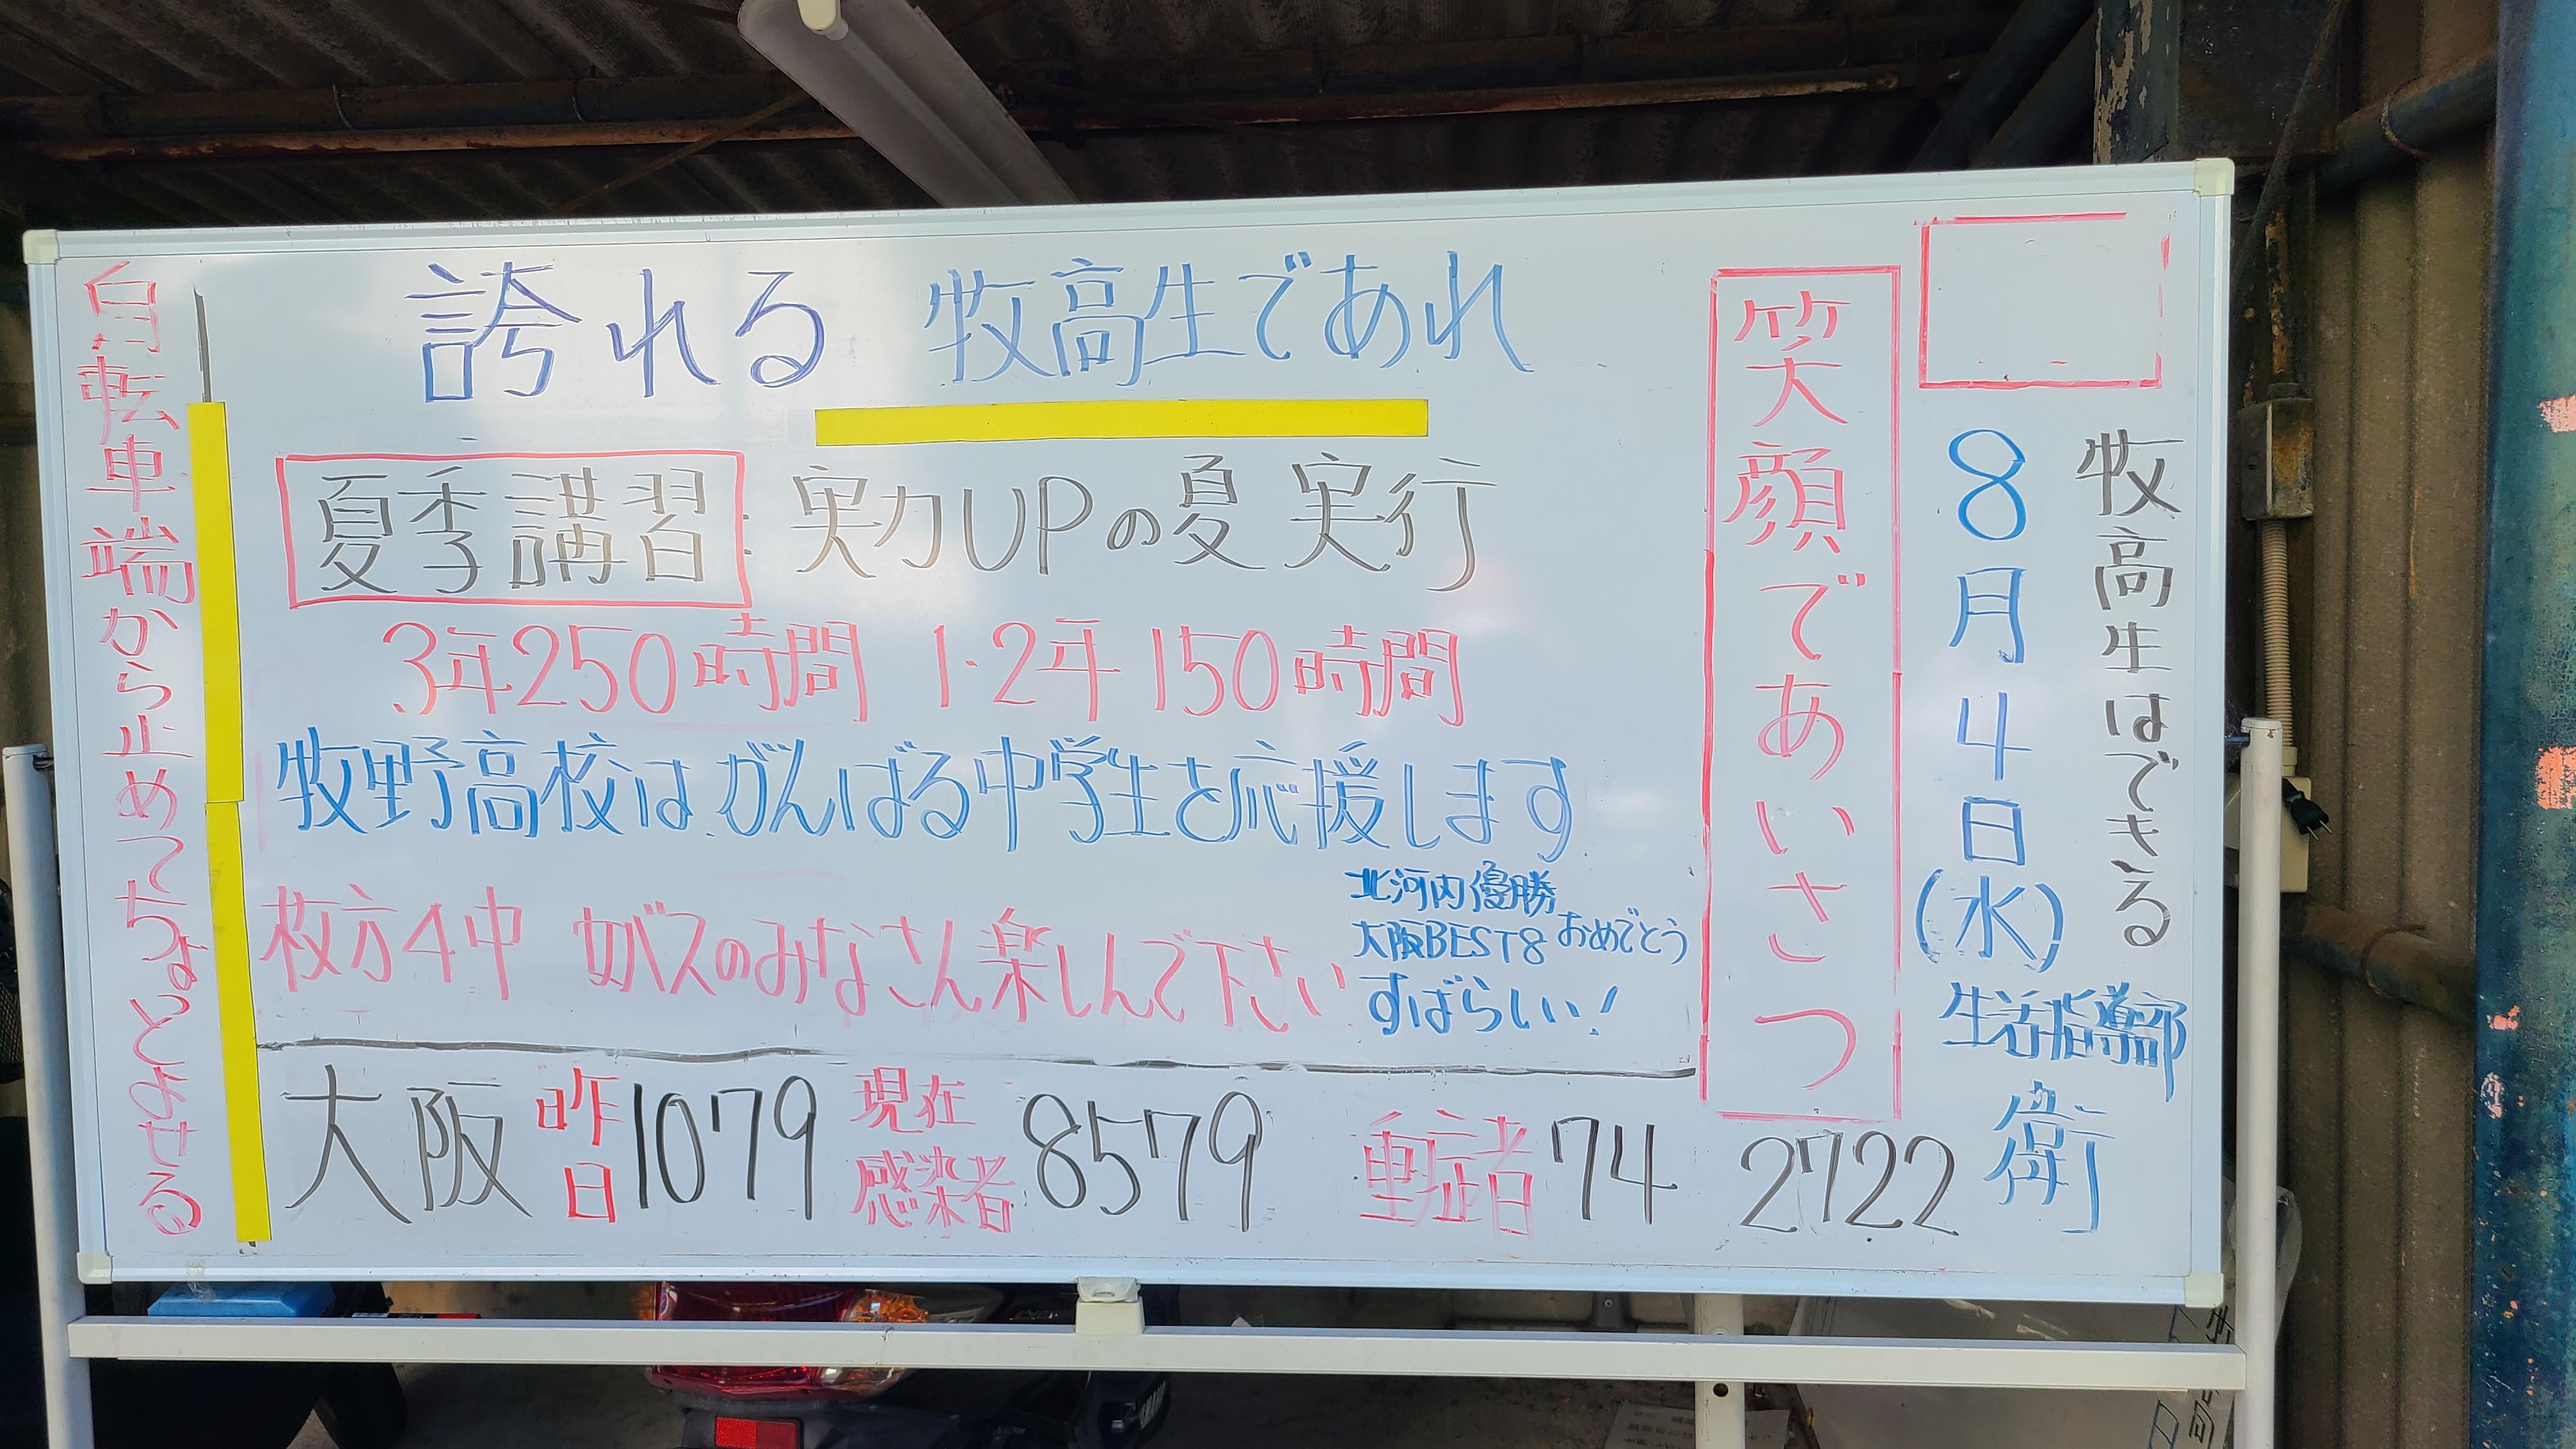 誇れる 牧高生であれ
夏季講習：実力UPの夏 実行
3年250時間 1・2年150時間
牧野高校はがんばる中学生を応援します
枚方4中 女バスのみなさん楽しんで下さい
北河内優勝
大阪BEST8 おめでとう
すばらしい！
大阪 昨日1079 現在感染者8579 重症者74 2722
牧高生はできる
8月4日(水)
生活指導部
衛
笑顔であいさつ
自転車端から止めてちょとよせる